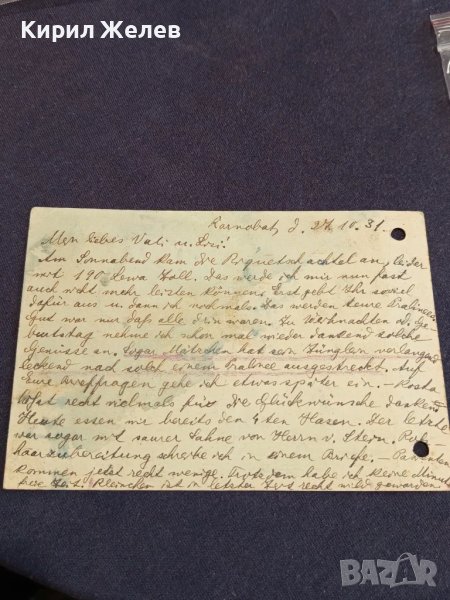 Кирил Желев
Karnobat, d. 27.10.31.
Mein liebes Vati u. Lisi!
Am Sonnabend kam die Briquetschachtel an, leider
mit 190 Lewa Zoll. Das werde ich mir nun fast
auch nicht mehr leisten können. Erst gebt Ihr soviel
dafür aus u. dann ich nochmals. Das werden teure Pralineen.
Gut war nur daß alle drin waren. Zu Weihnachten od. Ge-
burtstag nehme ich schon mal wieder dankend solche
Genüsse an. Sogar hat sein Zünglein verlangend
leckend nach solch einem Pralinee ausgestreckt. Auf
Eure Brieffragen gehe ich etwas später ein. – Kosta
läßt recht vielmals für die Glückwünsche danken.
Heute essen wir bereits den 4ten Hasen. Der letzte
war sogar mit saurer Sahne von Herrn v. Stern.
zubereitung schreibe ich in einem Briefe. – Patienten
kommen jetzt recht wenige. Trotzdem habe ich keine Minute
freie Zeit. Kleinchen ist in letzter Zeit recht wild geworden
BAZAR.BG